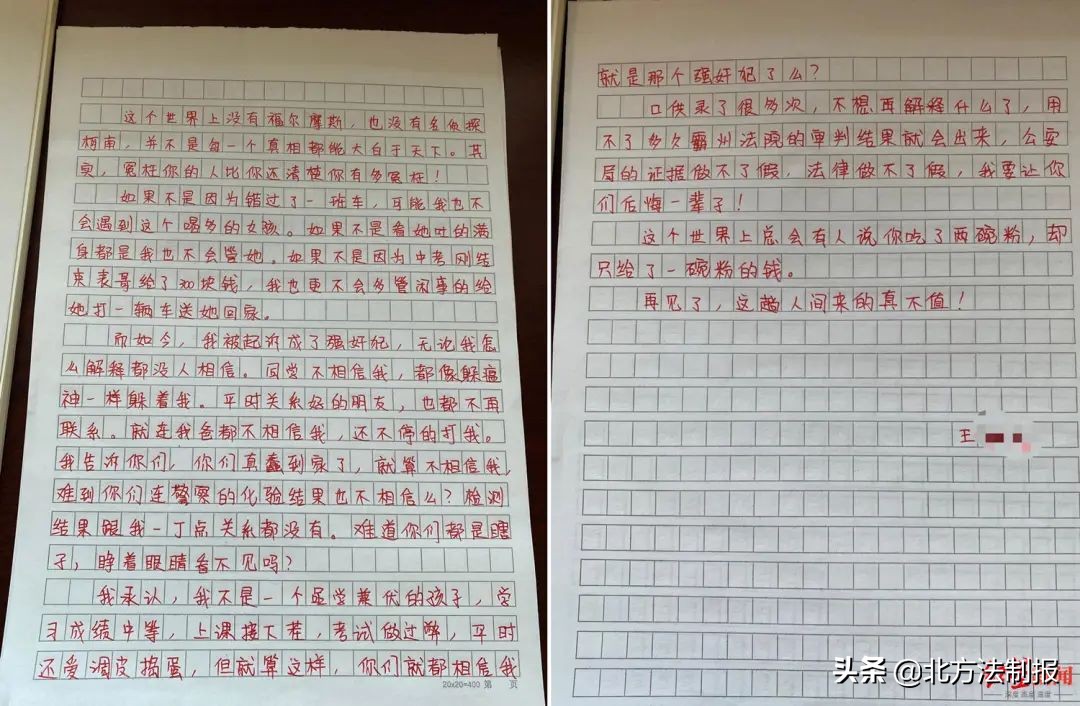 这个世界上没有福尔摩斯，也没有名侦探
柯南，并不是每一个真相都能大白于天下。其
实，冤枉你的人比你还清楚你有多冤枉！
如果不是因为错过了一班车，可能我也不
会遇到这个喝多的女孩。如果不是看她吐的满
身都是我也不会管她。如果不是因为中考刚结
束表哥给了300块钱，我也更不会多管闲事的给
她打一辆车送她回家。
而如今，我被起诉成了强奸犯，无论我怎
么解释都没人相信。同学不相信我，都像躲瘟
神一样躲着我。平时关系好的朋友，也都不再
联系。就连我爸都不相信我，还不停的打我。
我告诉你们，你们真蠢到家了，就算不相信我，
难到你们连警察的化验结果也不相信么？检测
结果跟我一丁点关系都没有。难道你们都是瞎
子，睁着眼睛看不见吗？
我承认，我不是一个品学兼优的孩子，学
习成绩中等，上课接下茬，考试做过弊，平时
还爱调皮捣蛋，但就算这样，你们就都相信我
20×20=400 第 页
就是那个强奸犯了么？
口供录了很多次，不想再解释什么了，用
不了多久霸州法院的审判结果就会出来，公安
局的证据做不了假，法律做不了假，我要让你
们后悔一辈子！
这个世界上总会有人说你吃了两碗粉，却
只给了一碗粉的钱。
再见了，这趟人间来的真不值！
王
头条 @北方法制报
深度 高度 温度